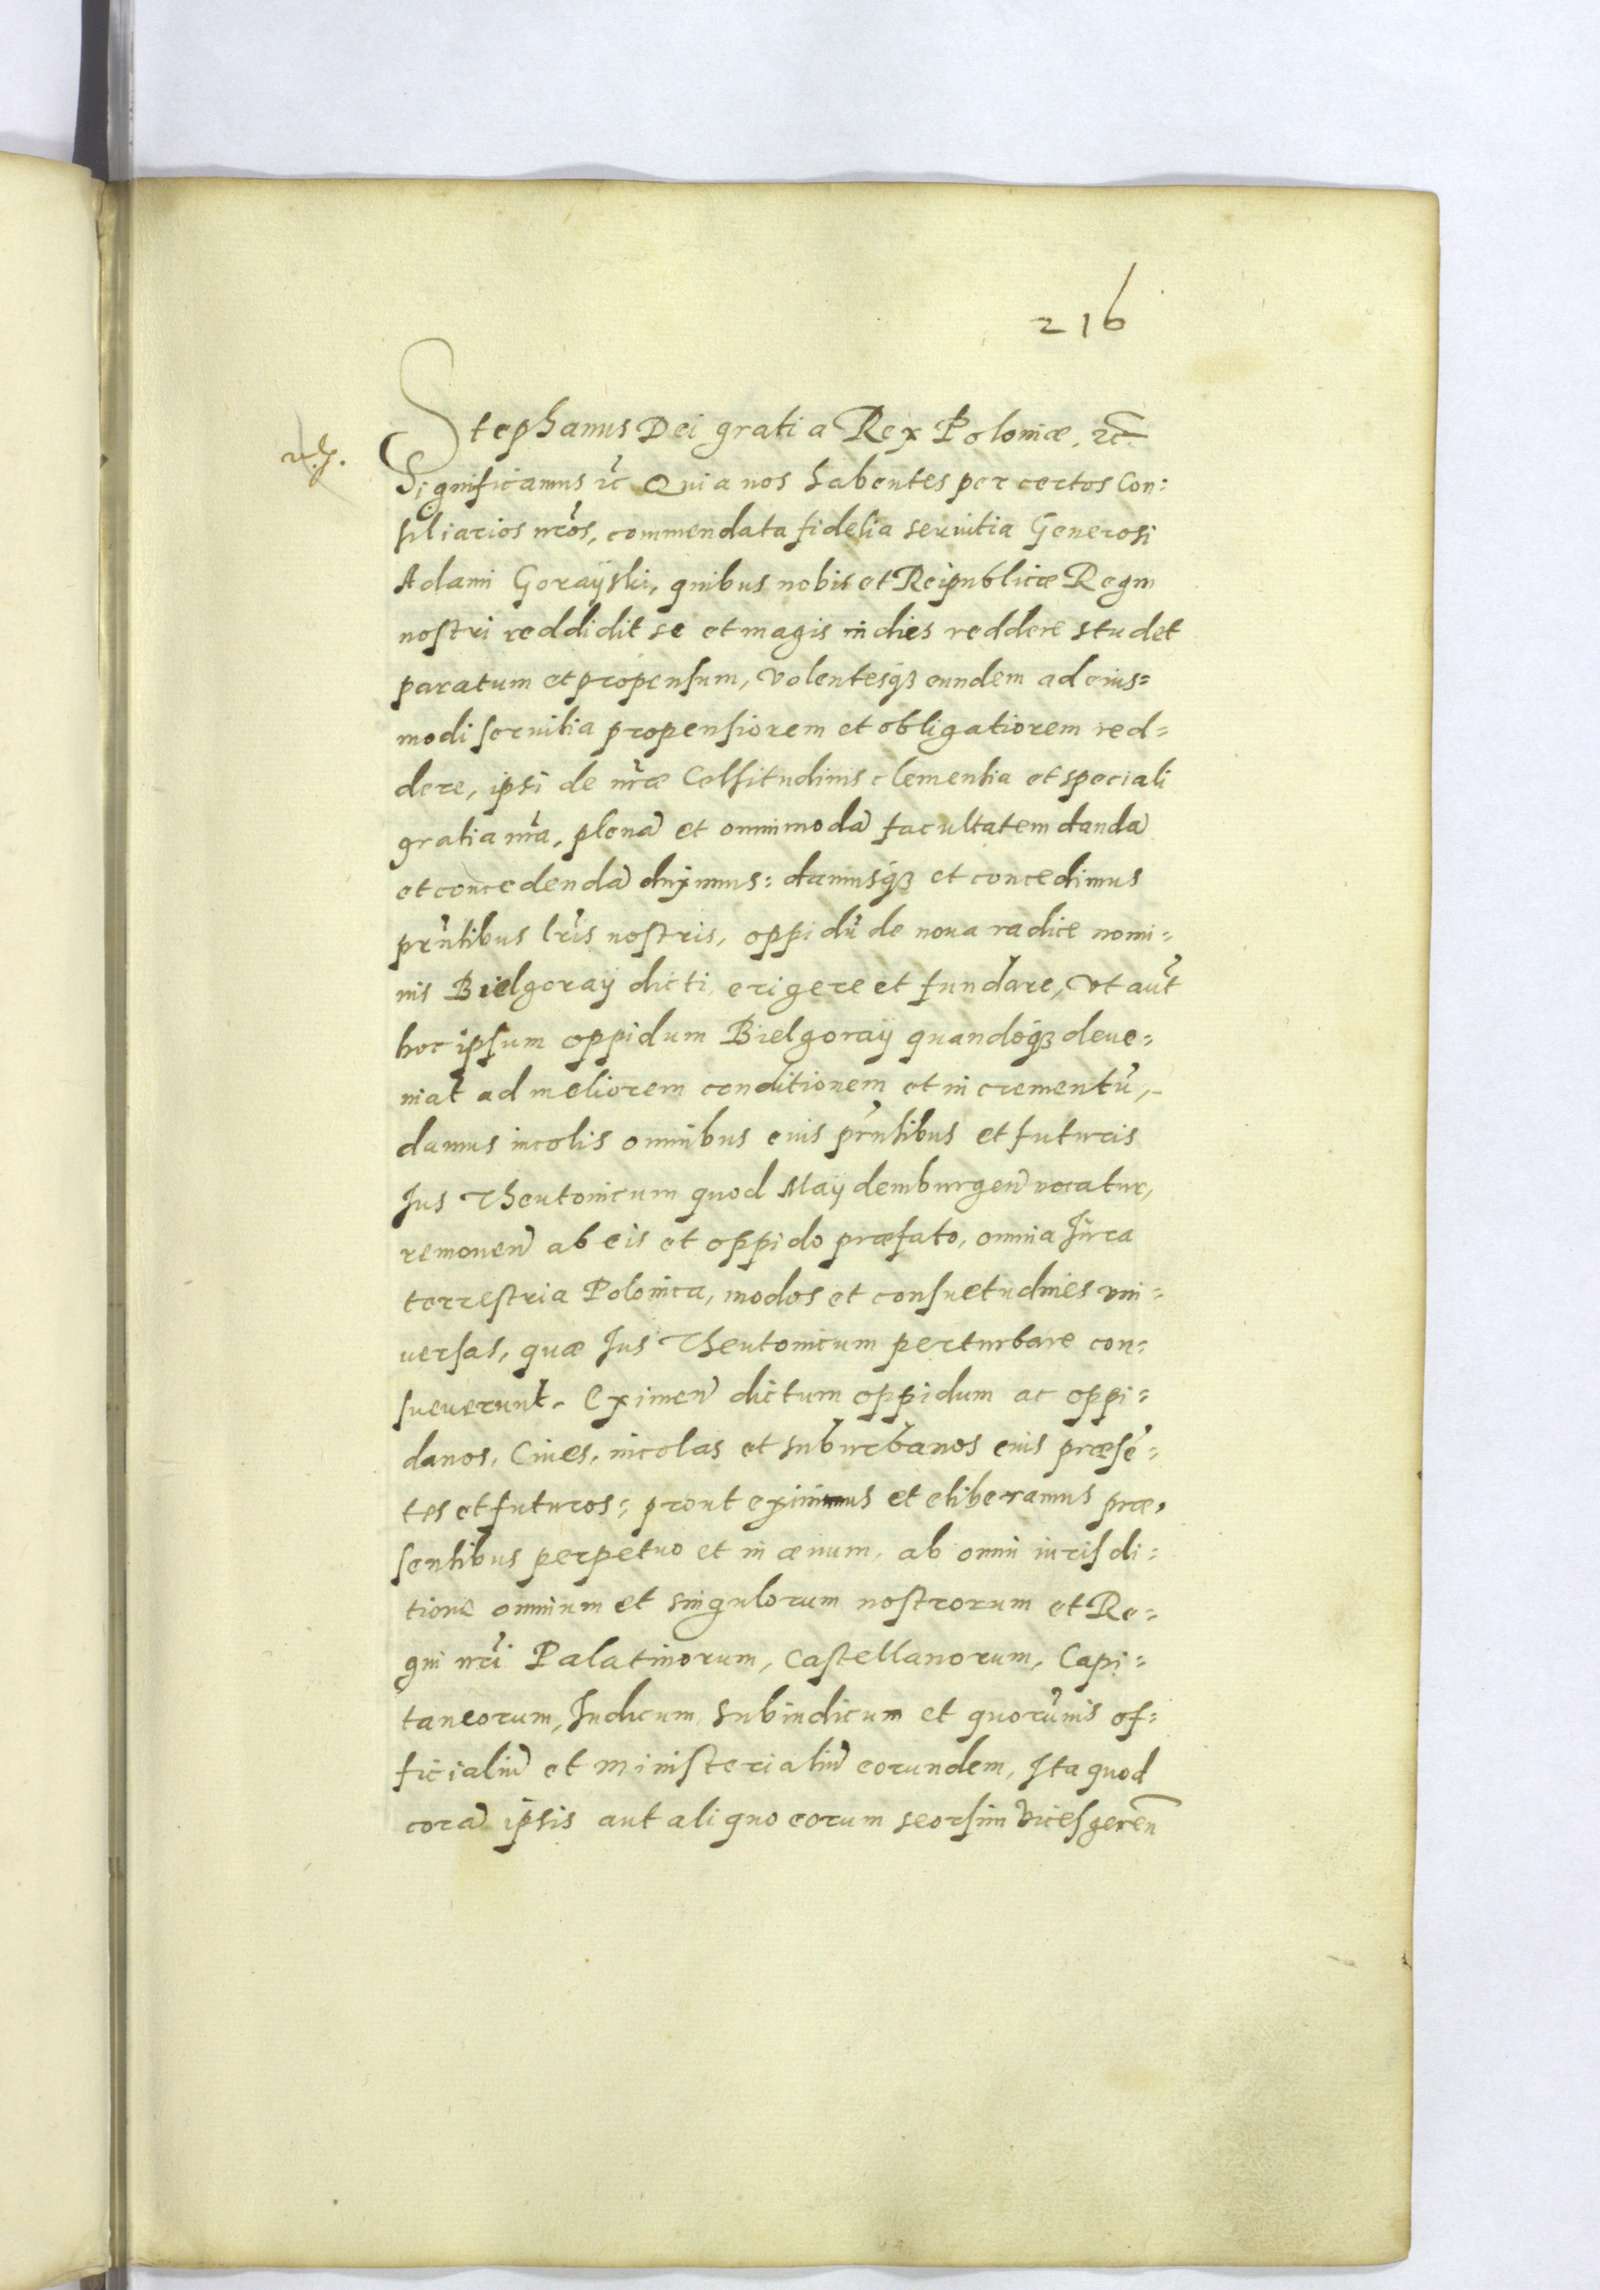 216
Stephanus Dei gratia Rex Poloniæ, ꝛc̄
Significamus ꝛc̄ Quia nos habentes per certos Con:
siliarios nr̄os, commendata fidelia seruitia Generosi
Adami Gorayski, quibus nobis et Reipublicæ Regni
nostri reddidit se et magis in dies reddere studet
paratum et propensum, volentesqꝫ eundem ad eius=
modi seruitia propensiorem et obligatiorem red=
dere, ipsi de nr̄æ Celsitudinis clementia et speciali
gratia nr̄a, plenā et omnimodā facultatem dandā
et concedendā duximus: damusqꝫ et concedimus
prn̄tibus lr̄is nostris, oppidū de noua radice nomi=
nis Bielgoraÿ dicti, erigere et fundare, Vt aūt
hoc ipsum oppidum Bielgoraÿ quandoqꝫ deue=
niat ad meliorem conditionem et incrementū,
damus incolis omnibus eius prn̄tibus et futuris
Jus Theutonicum quod Maÿdemburgen̄ vocatur,
remouen̄ ab eis et oppido præfato, omnia Jura
terrestria Polonica, modos et consuetudines vni=
uersas, quæ Jus Theutonicum perturbare con=
sueuerunt. Eximen̄ dictum oppidum ac oppi=
danos, Ciues, incolas et suburbanos eius præsē=
tes et futuros: prout eximimus et eliberamus præ=
sentibus perpetuo et in æuum, ab omni iurisdi=
tione omnium et singulorum nostrorum et Re=
gni nr̄i Palatinorum, Castellanorum, Capi=
taneorum, Judicum Subiudicum et quorūuis of=
ficialiū et Ministerialiū eorundem, Ita quod
corā ipsis aut aliquo eorum seorsim vicesgeren̄